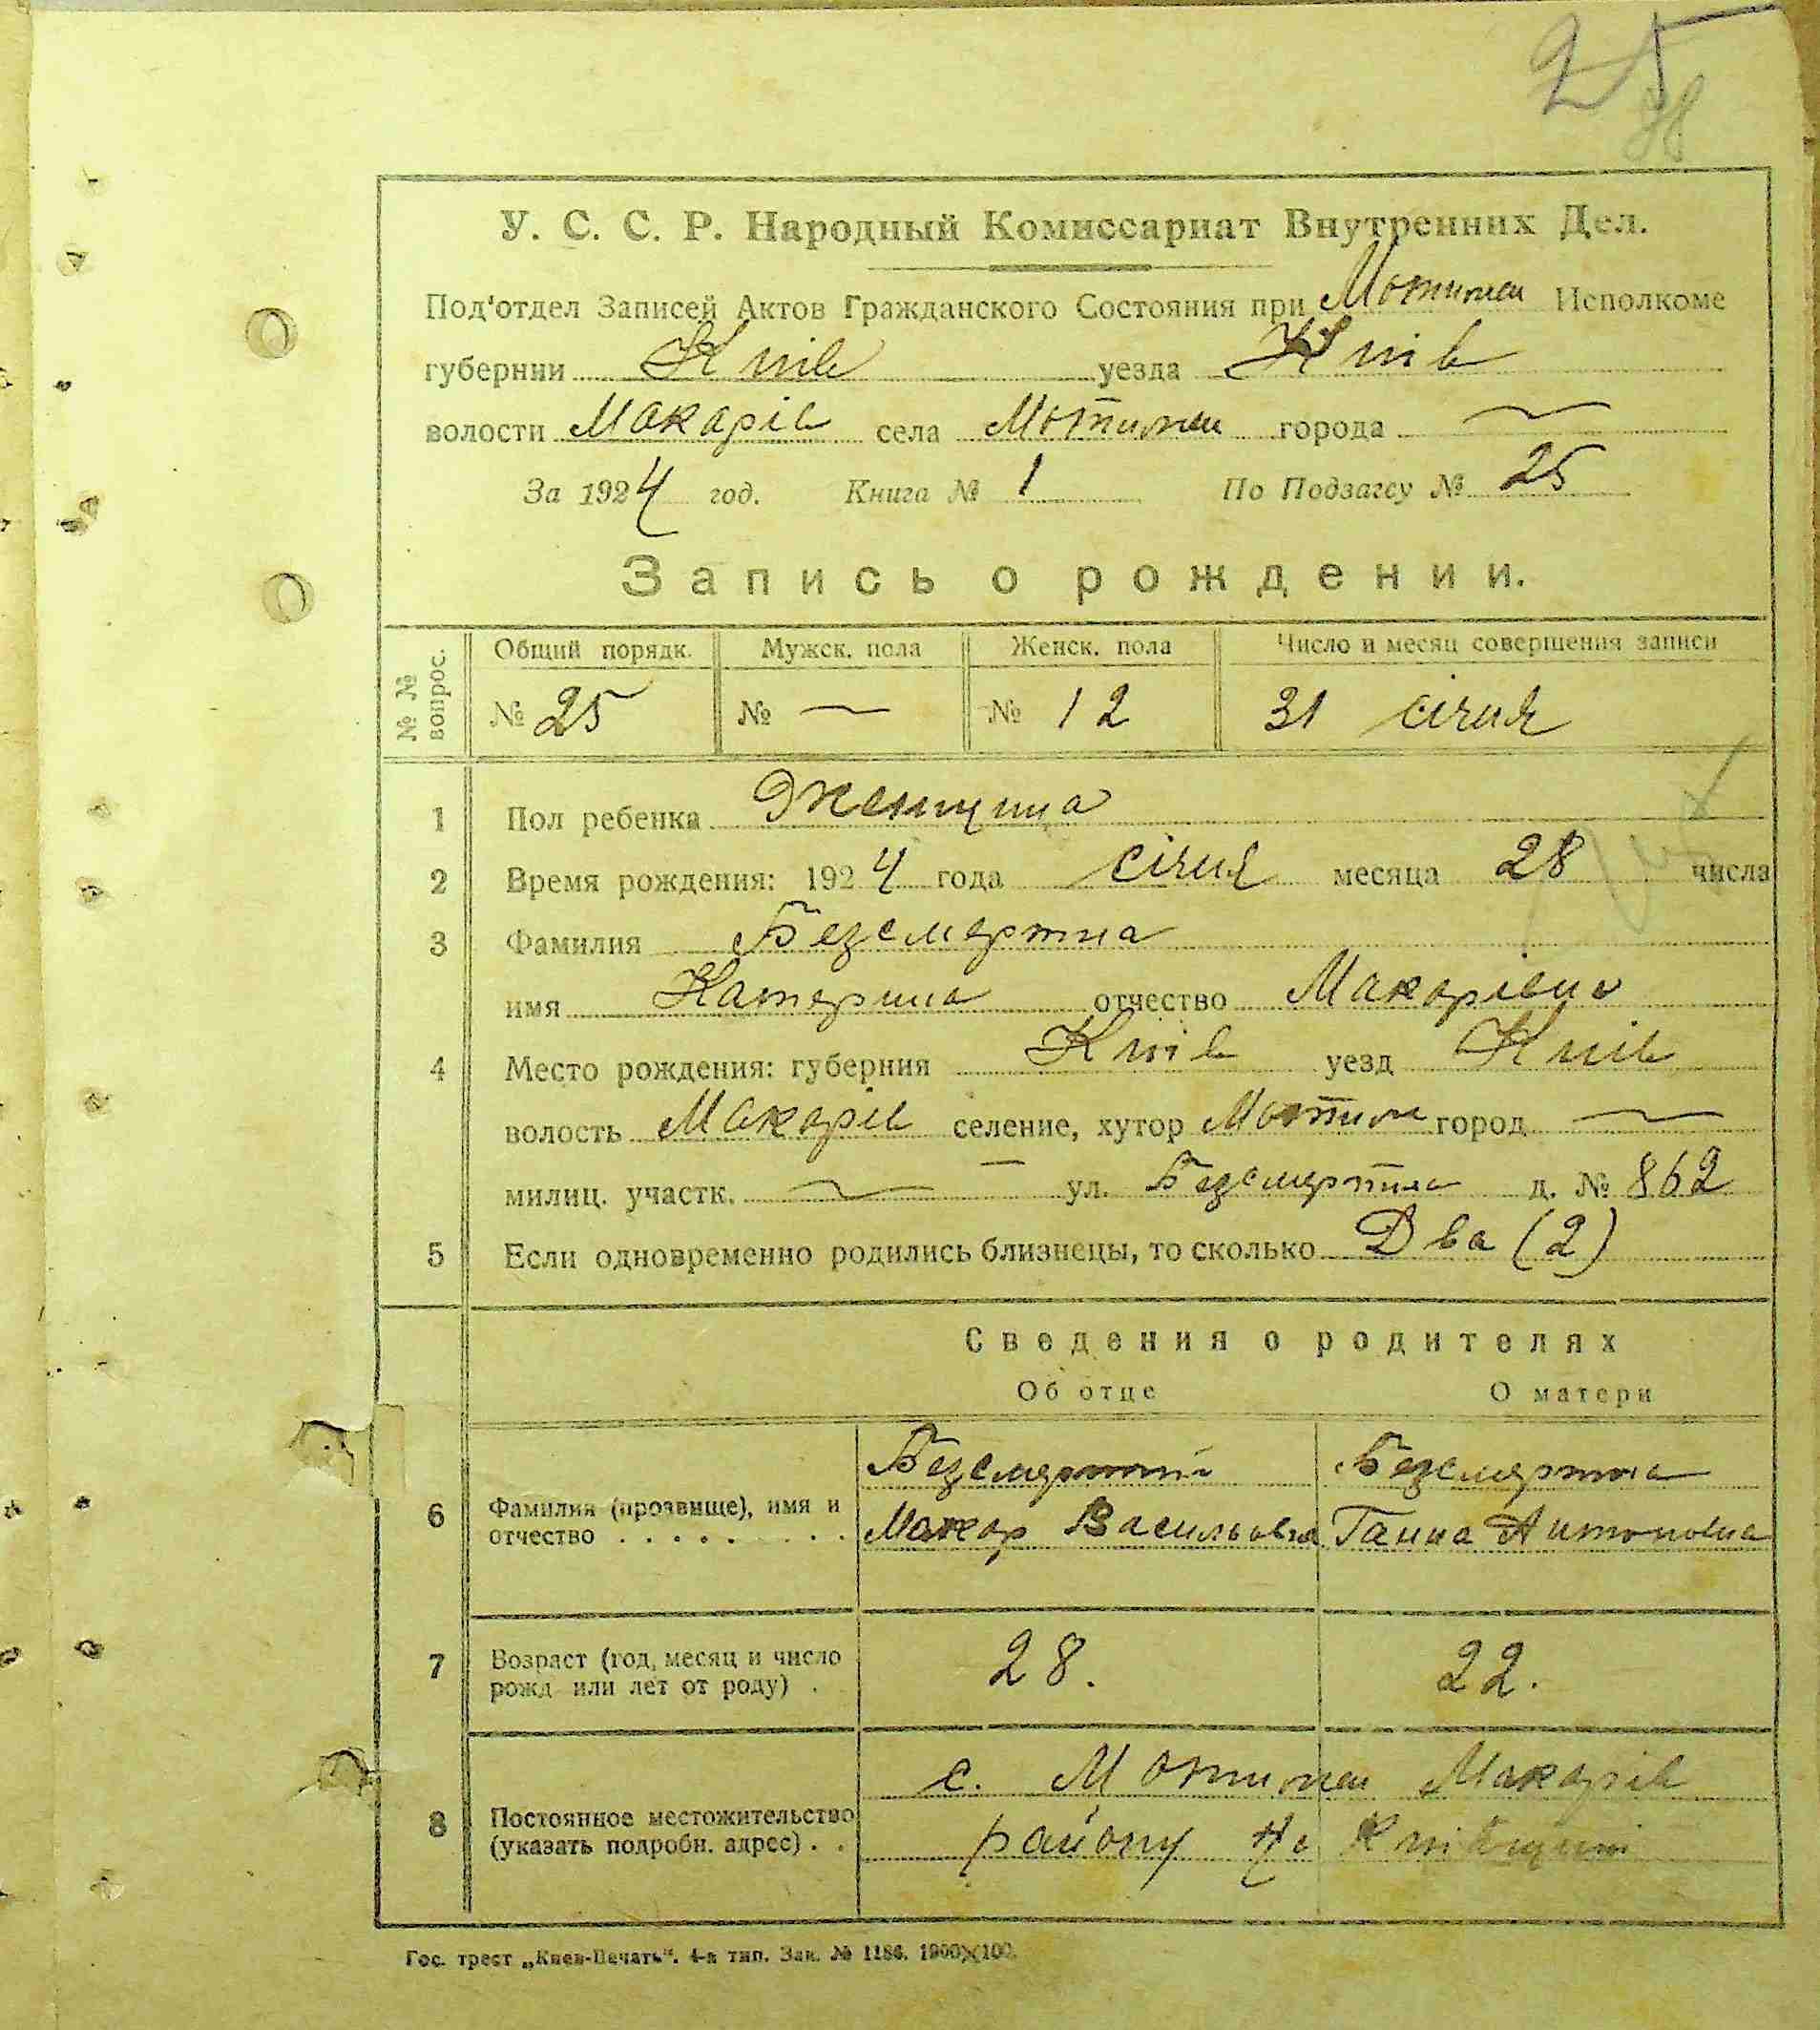 25
38
У. С. С. Р. Народный Комиссариат Внутренних Дел.
Под'отдел Записей Актов Гражданского Состояния при Мотижен Исполкоме
губернии Київ уезда Київ
волости Макарів села Мотижен города —
За 1924 год. Книга № 1 По Подзагсу № 25
Запись о рождении.
№ № вопрос. Общий порядк. Мужск. пола Женск. пола Число и месяц совершения записи
№ 25 № — № 12 31 січня
1 Пол ребенка Женщина
2 Время рождения: 1924 года січня месяца 28 числа
3 Фамилия Безсмертна
имя Катерина отчество Макарівна
4 Место рождения: губерния Київ уезд Київ
волость Макарів селение, хутор Мотижен город —
милиц. участк. — ул. Безсмертна д. № 862
5 Если одновременно родились близнецы, то сколько Два (2)
Сведения о родителях
Об отце О матери
Безсмертний Безсмертна
6 Фамилия (прозвище), имя и отчество . . . . . . . . Макар Васильович Ганна Антоновна
7 Возраст (год, месяц и число рожд или лет от роду) . 28. 22.
с. Мотижен Макарів
8 Постоянное местожительство (указать подробн. адрес) . . району На Київщині
Гос. трест „Киев-Печать". 4-я тип. Зак. № 1186. 1900×100.